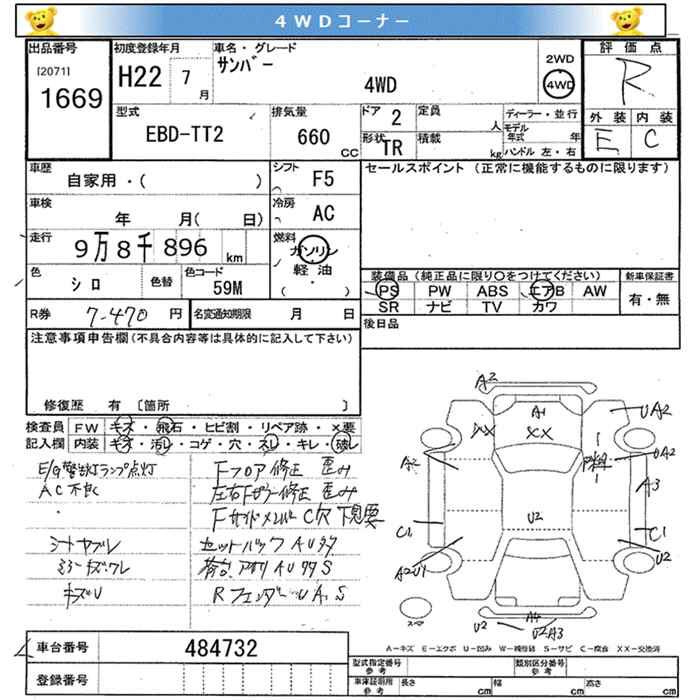 4WDコーナー
出品番号 初度登録年月 車名・グレード 評価点
[2071] サンバー 2WD
1669 H22 7月 4WD 4WD R
型式 排気量 ドア 2 定員 人 ディーラー・並行 外装 内装
EBD-TT2 660 CC 形状 TR 積載 kg モデル年式 年 ハンドル 左・右 E C
車歴 自家用・( ) シフト F5 セールスポイント (正常に機能するものに限ります)
車検 年 月( 日) 冷房 AC
走行 9万8千896km 燃料 ガソリン
軽油
( )
色 シロ 色替 色コード 59M 装備品(純正品に限り○をつけてください) 新車保証書
PS PW ABS エアB AW 有・無
SR ナビ TV カワ
R券 7-470円 名変通知期限 月 日 後日品
注意事項申告欄(不具合内容等は具体的に記入して下さい)
修復歴 有 〔箇所 〕
検査員 FW キズ・飛石・ヒビ割・リペア跡・×要
記入欄 内装 キズ・汚レ・コゲ・穴・スレ・キレ・破レ
E/G警告灯ランプ点灯 Fフロア修正 歪み
AC不良 左右Fピラー修正 歪み
FサイドメンバーC穴 下見要
シートヤブレ セットバックAUサタ
ミラーキズワレ 荷台アオリAUサタS
キズU RフェンダーUAS
A2
A1 UA2
XX XX
A2 UA2
A3
U2
C1 C1
A2U1 U2
スペア
U2 A4 U2A3
A-キズ E-エクボ U-凹み W-補修跡 S-サビ C-腐食 XX-交換済
車台番号 484732
登録番号
型式指定番号 参考 類別区分番号 参考
車庫証明用 参考 長さ cm 幅 cm 高さ cm